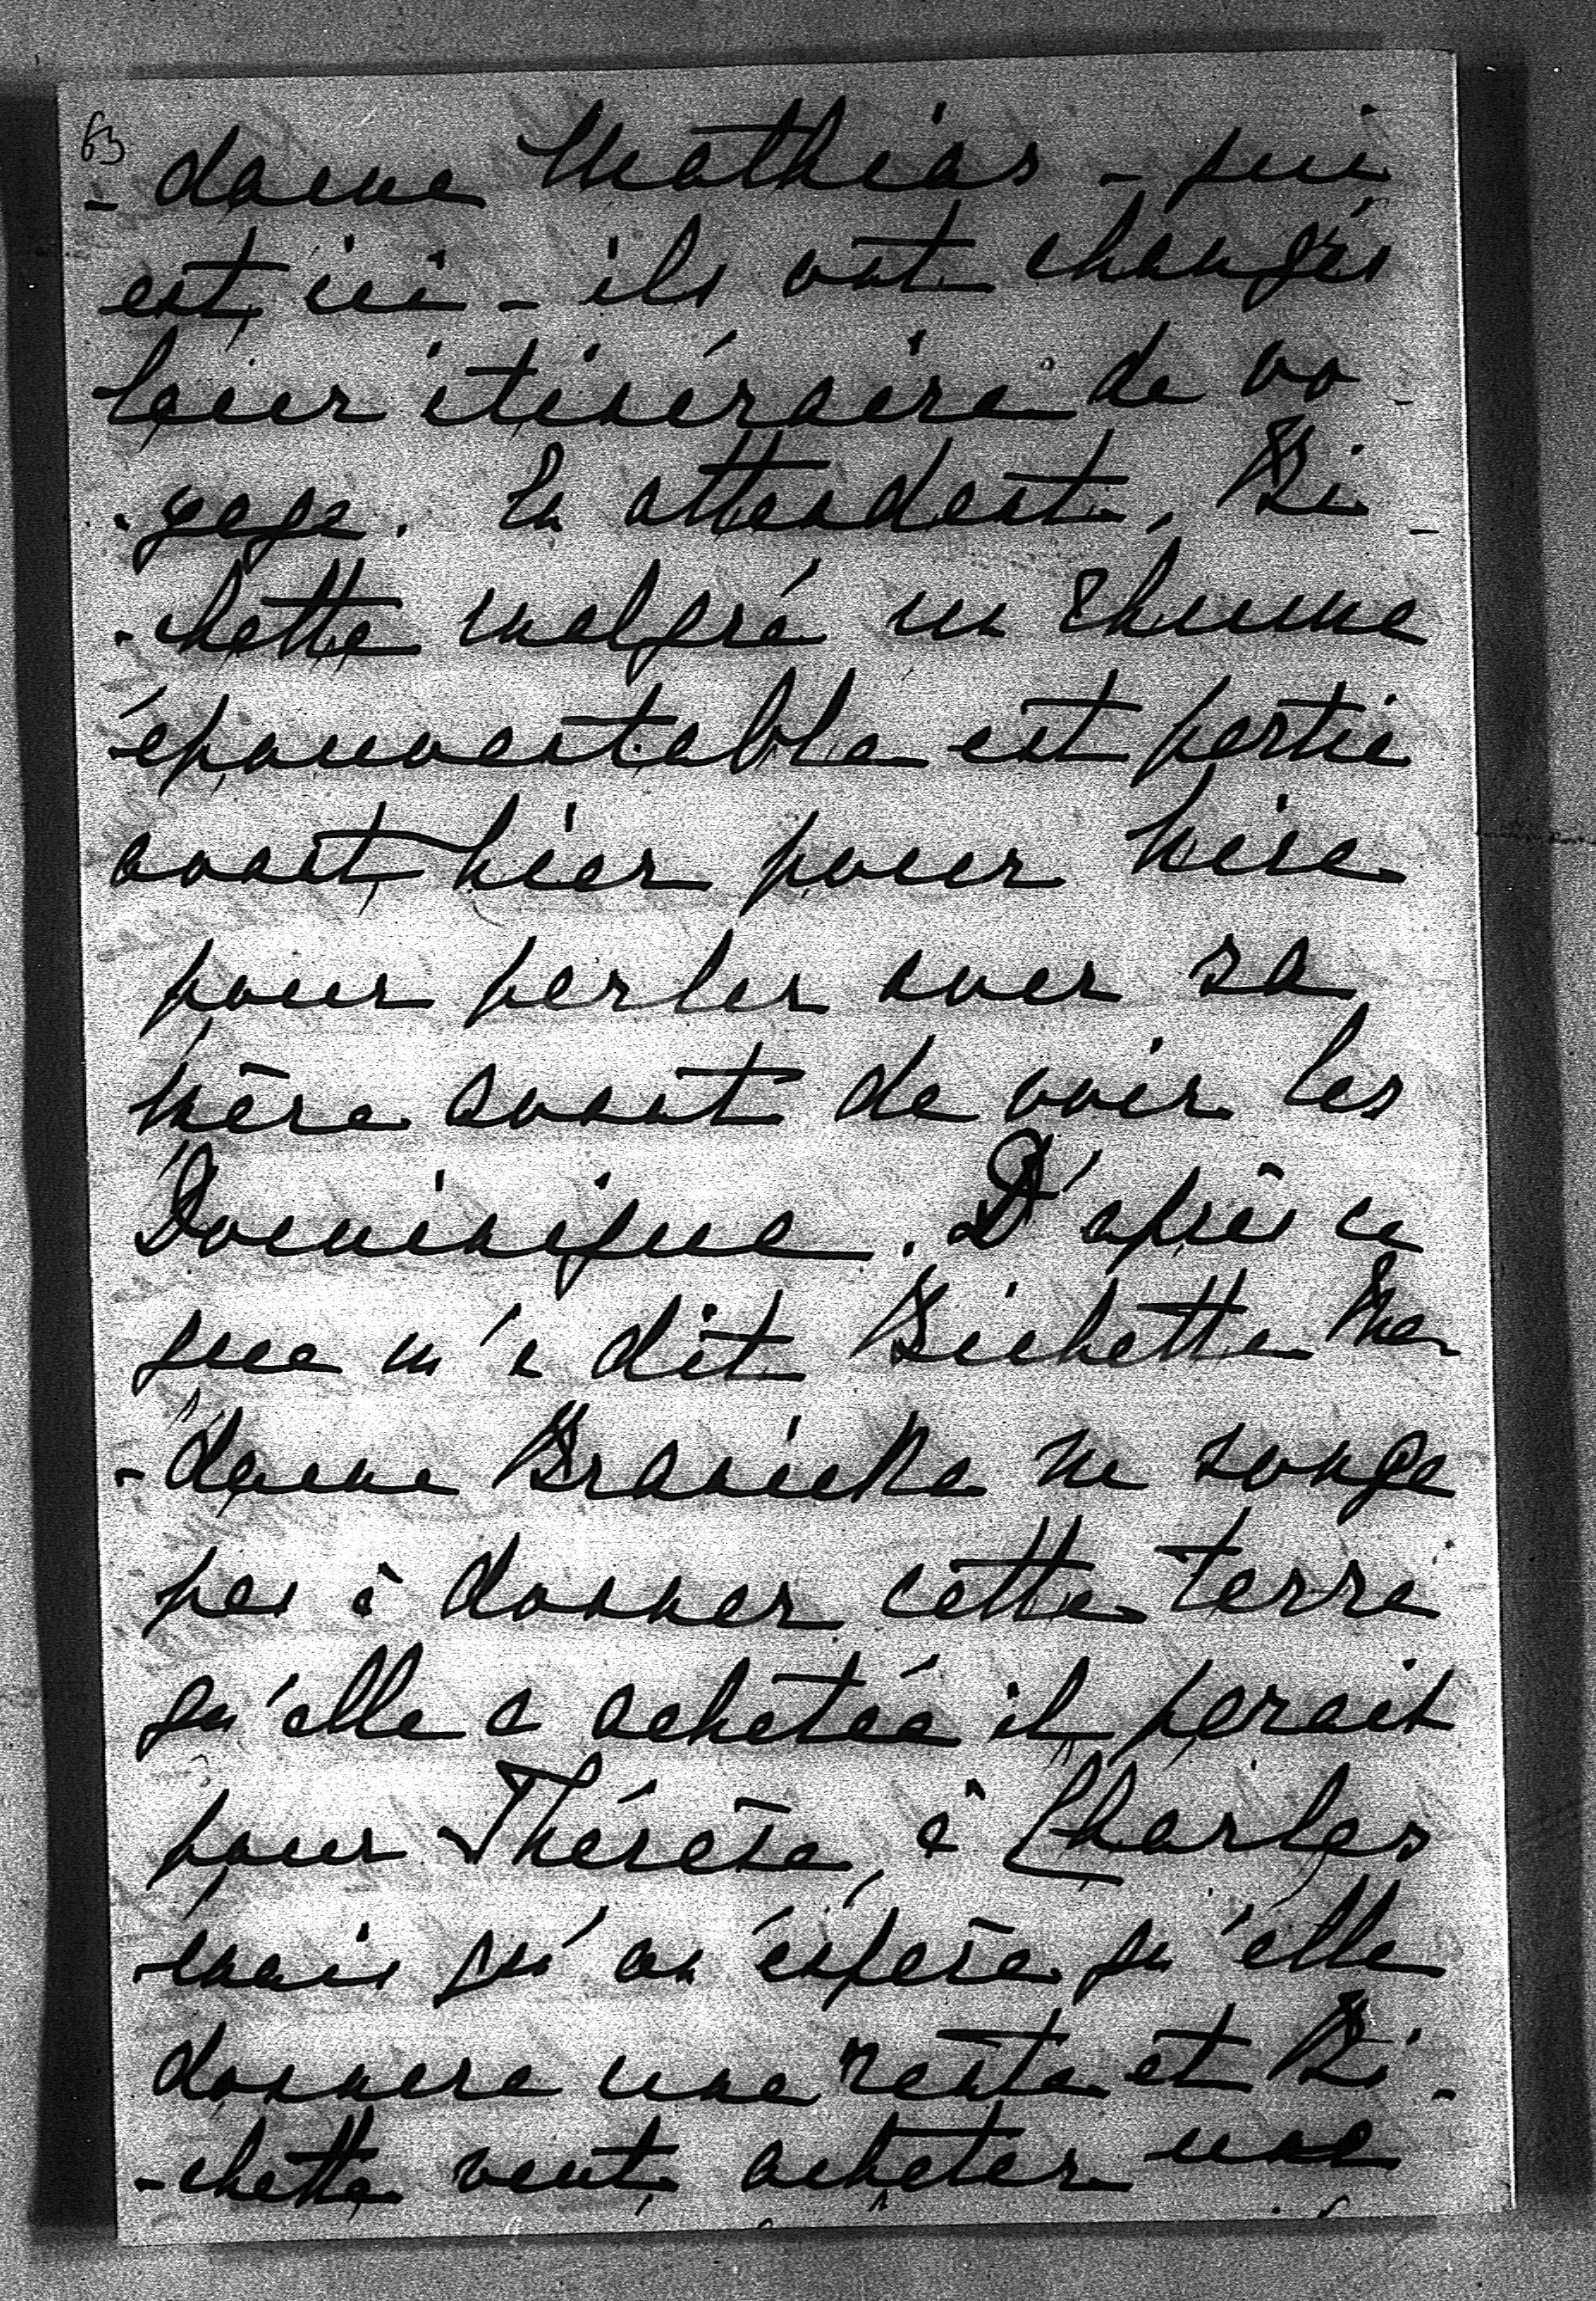 63
-dame Mathias - qui
est ici - ils ont changés
leur itinéraire de vo-
-yage. En attendant, Bi-
-chette malgré un rhume
épouvantable est partie
avant hier pour Nice
pour parler avec sa
mère avant de voir les
Dominique. D'après ce
que m'a dit Bichette Ma-
-dame Branicka ne songe
pas à donner cette terre
qu'elle a achetée il parait
pour Thérèse, à Charles
mais qu'on éspère qu'elle
donnera une rente et Bi-
-chette veut acheter une